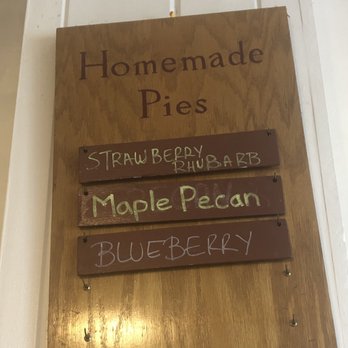 Homemade
Pies
STRAWBERRY
RHUBARB
Maple Pecan
BLUEBERRY